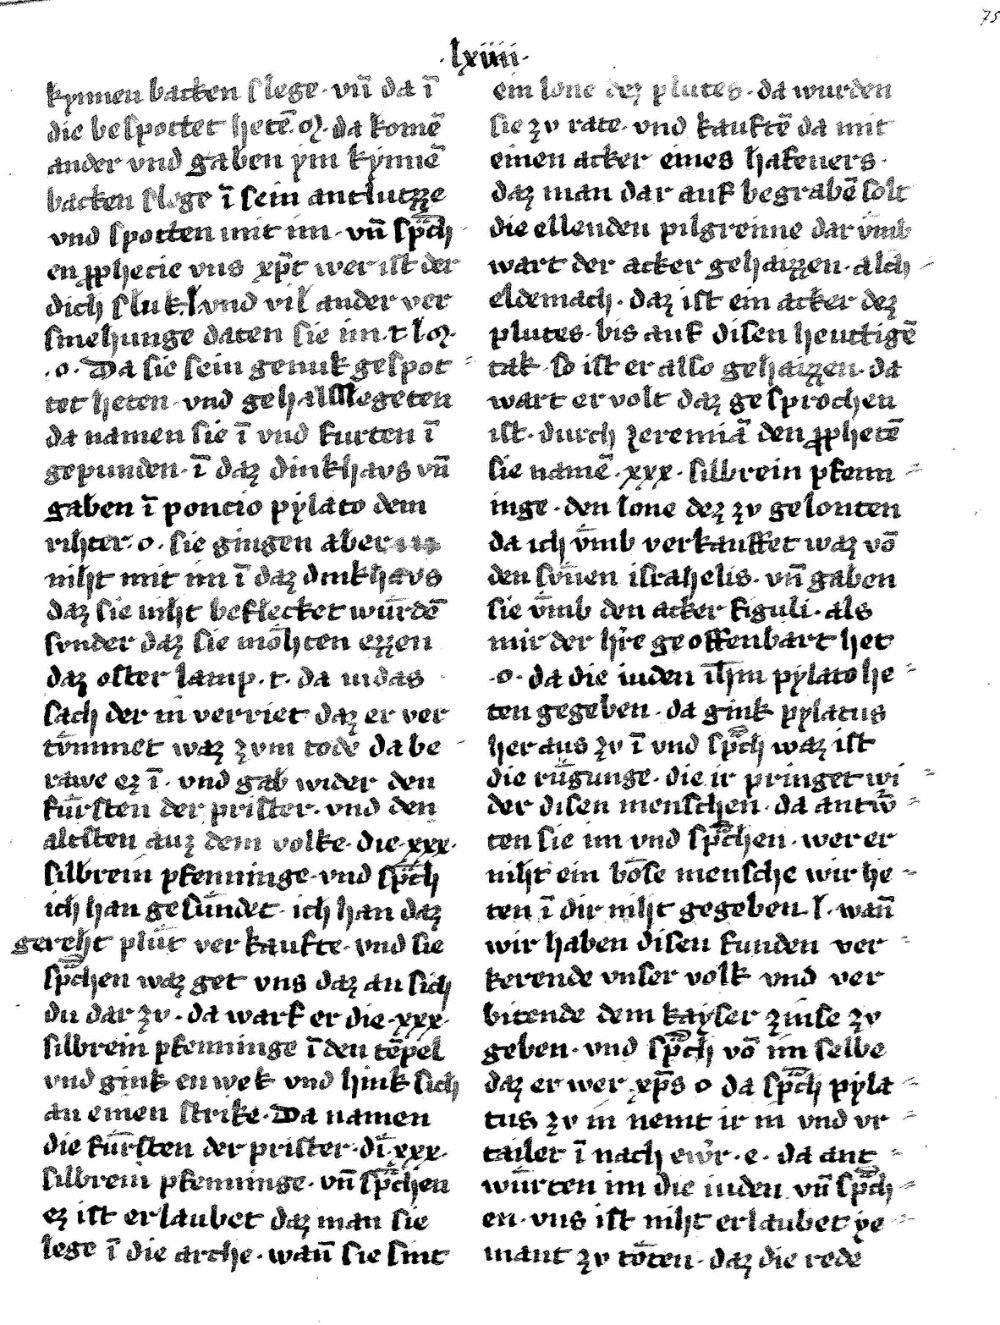 75
·lxiiii·
kynnen backen slege · vn̄ da ī
die bespottet hetē. oꝝ. da komē
ander vnd gaben ym kynnē
backen slege ī sein antlutzze
vnd spotten mit im · vn̄ sp̄ch
en ꝓphecie vns xp̄t wer ist der
dich sluk. l. vnd vil ander ver
smehunge daten sie im. t loꝝ.
.o. Da sie sein genuk gespot
tet heten · vnd gehalMegeten
da namen sie ī vnd furten ī
gepunden · ī daz dinkhavs vn̄
gaben ī poncio pylato dem
rihter. o. sie gingen aber
niht mit im ī daz dinkhavs
daz sie niht beflecket wurdē
svnder daz sie mohten ezzen
daz oster lamp. t. da iudas
sach der in verriet daz er ver
tv̄mmet waz zvm tode da be
rawe ez ī · vnd gab wider den
fürsten der prister · vnd den
altsten auz dem volke · die · xxx·
silbrein pfenninge · vnd sp̄ch
ich han gesündet · ich han daz
gereht plüt verkaufte · vnd sie
sp̄chen waz get vns daz an sich
du dar zv · da warf er die · xxx·
silbrein pfenninge ī den tēpel
vnd gink enwek vnd hink sich
an einen strike · Da namen
die fürsten der prister · di · xxx·
silbrein pfenninge · vn̄ sp̄chen
ez ist erlaubet daz man sie
lege ī die arche · wan̄ sie sint
ein lone dez plutes · da wurden
sie zv rate · vnd kauftē da mit
einen acker eines hafeners ·
daz man dar auf begrabē solt
die ellenden pilgreime dar v̄mb
wart der acker gehaizzen · alch
eldemach · daz ist ein acker dez
plutes · bis auf disen heuttigē
tak · so ist er also gehaizzen · da
wart ervolt daz gesprochen
ist · durch zeremiā den ꝓphetē
sie namē · xxx · silbrein pfenn
inge · den lone dez zv gelonten
da ich v̄mb verkauffet waz vō
den svnen israhelis · vn̄ gaben
sie v̄mb den acker figuli · als
mir der h̄re geoffenbart het
·o· da die iuden ih̄m pylato he
ten gegeben · da gink pylatus
her aus zv ī vnd sp̄ch waz ist
die rügunge · die ir pringet wi
der disen menschen · da antw̄
ten sie im vnd sp̄chen · wer er
niht ein böse mensche wir he
ten ī dir niht gegeben. l. wan̄
wir haben disen funden ver
kerende vnser volk vnd ver
bitende dem kayser zinse zv
geben · vnd sp̄ch vō im selbe
daz er wer xp̄s o da sp̄ch pyla
tus zv in nemt ir in vnd vr
tailer ī nach ewr̄ · e · da ant
würten im die iuden vn̄ sp̄ch
en · vns ist niht erlaubet ye
mant zv töten · daz die rede